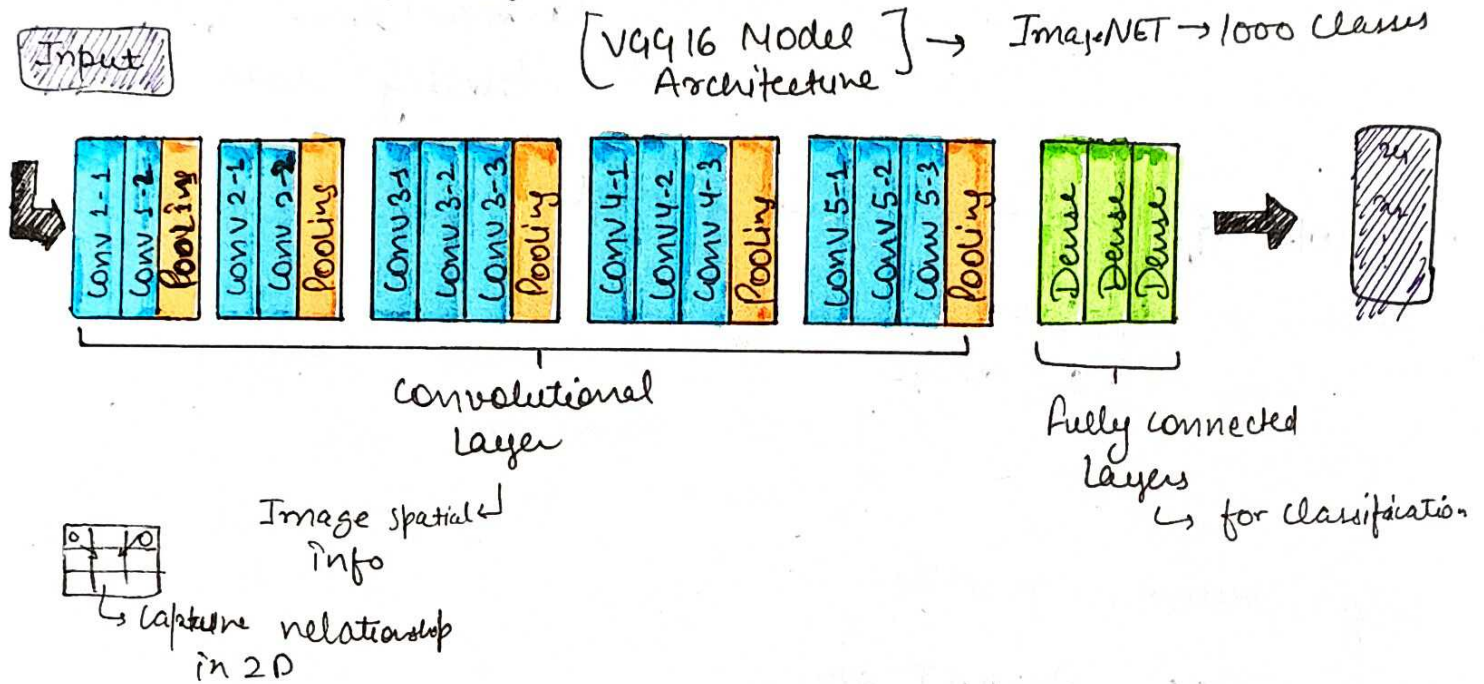 Input
[VGG16 Model Architecture] → ImageNET → 1000 Classes
Conv 1-1
Conv 1-2
Pooling
Conv 2-1
Conv 2-2
Pooling
Conv 3-1
Conv 3-2
Conv 3-3
Pooling
Conv 4-1
Conv 4-2
Conv 4-3
Pooling
Conv 5-1
Conv 5-2
Conv 5-3
Pooling
Dense
Dense
Dense
Convolutional
Layer
Image spatial
info
Capture relationship
in 2D
Fully connected
Layers
↳ for Classification